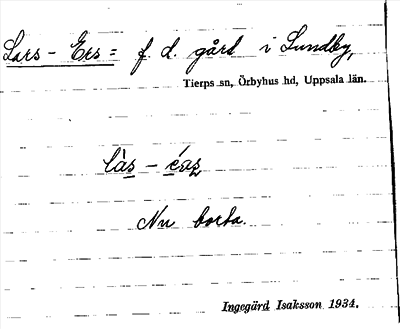 Lars-Ers= f. d. gård i Lundby,
Tierps sn, Örbyhus hd, Uppsala län.
Nu borta.
Ingegärd Isaksson 1934.